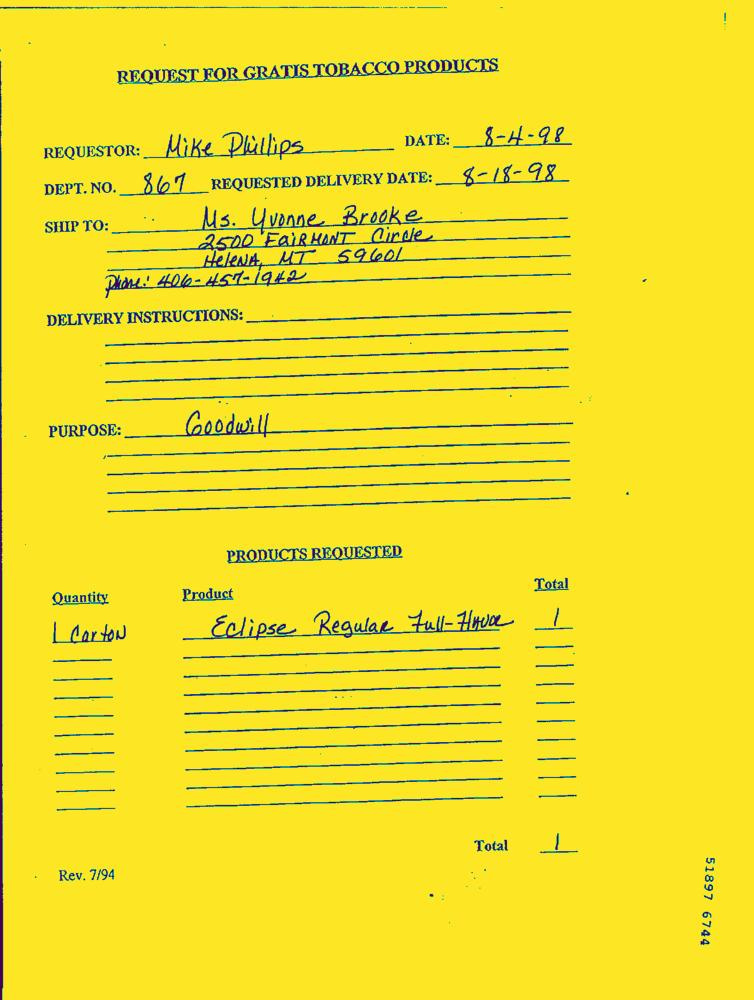 REQUEST FOR GRATIS TOBACCO PRODUCTS
REQUESTOR: Mike Phillips DATE: 8-4-98
DEPT. NO. 867 REQUESTED DELIVERY DATE: 8-18-98
SHIP TO: Ms. Yvonne Brooke
2500 FAIRMONT Circle
HeleNA, MT 59601
Phone: 406-457-1942
DELIVERY INSTRUCTIONS:
PURPOSE: Goodwill
PRODUCTS REQUESTED
Quantity Product Total
1 Carton Eclipse Regular Full-Flavor 1
Total 1
Rev. 7/94
51897 6744